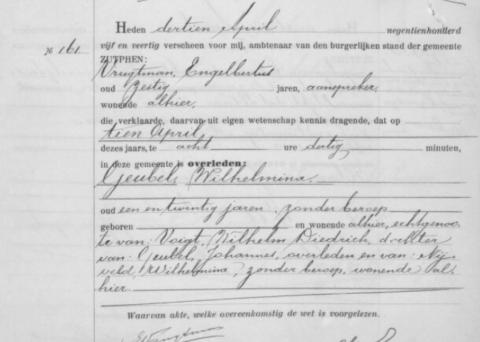 Heden dertien April negentienhonderd
№ 161. vijf en veertig verscheen voor mij, ambtenaar van den burgerlijken stand der gemeente
ZUTPHEN:
Vrugtman, Engelbertus
oud zestig jaren, aanspreker,
wonende alhier,
die verklaarde, daarvan uit eigen wetenschap kennis dragende, dat op
tien April,
dezes jaars, te acht ure dertig minuten,
in deze gemeente is overleden:
Geubel, Wilhelmina,
oud een en twintig jaren, zonder beroep
geboren en wonende alhier, echtgenoo-
te van: Voigt, Wilhelm Diedrich, dochter
van: Geubel, Johannes, overleden en van: Nij
veld, Wilhelmina, zonder beroep, wonende al
hier.
Waarvan akte, welke overeenkomstig de wet is voorgelezen.